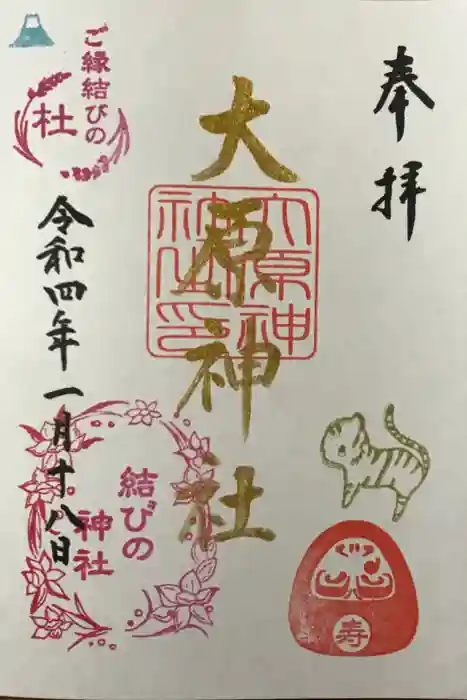 奉拝
大原神社
大原神
社印
ご縁結びの
杜
令和四年一月十八日
結びの
神社
寿